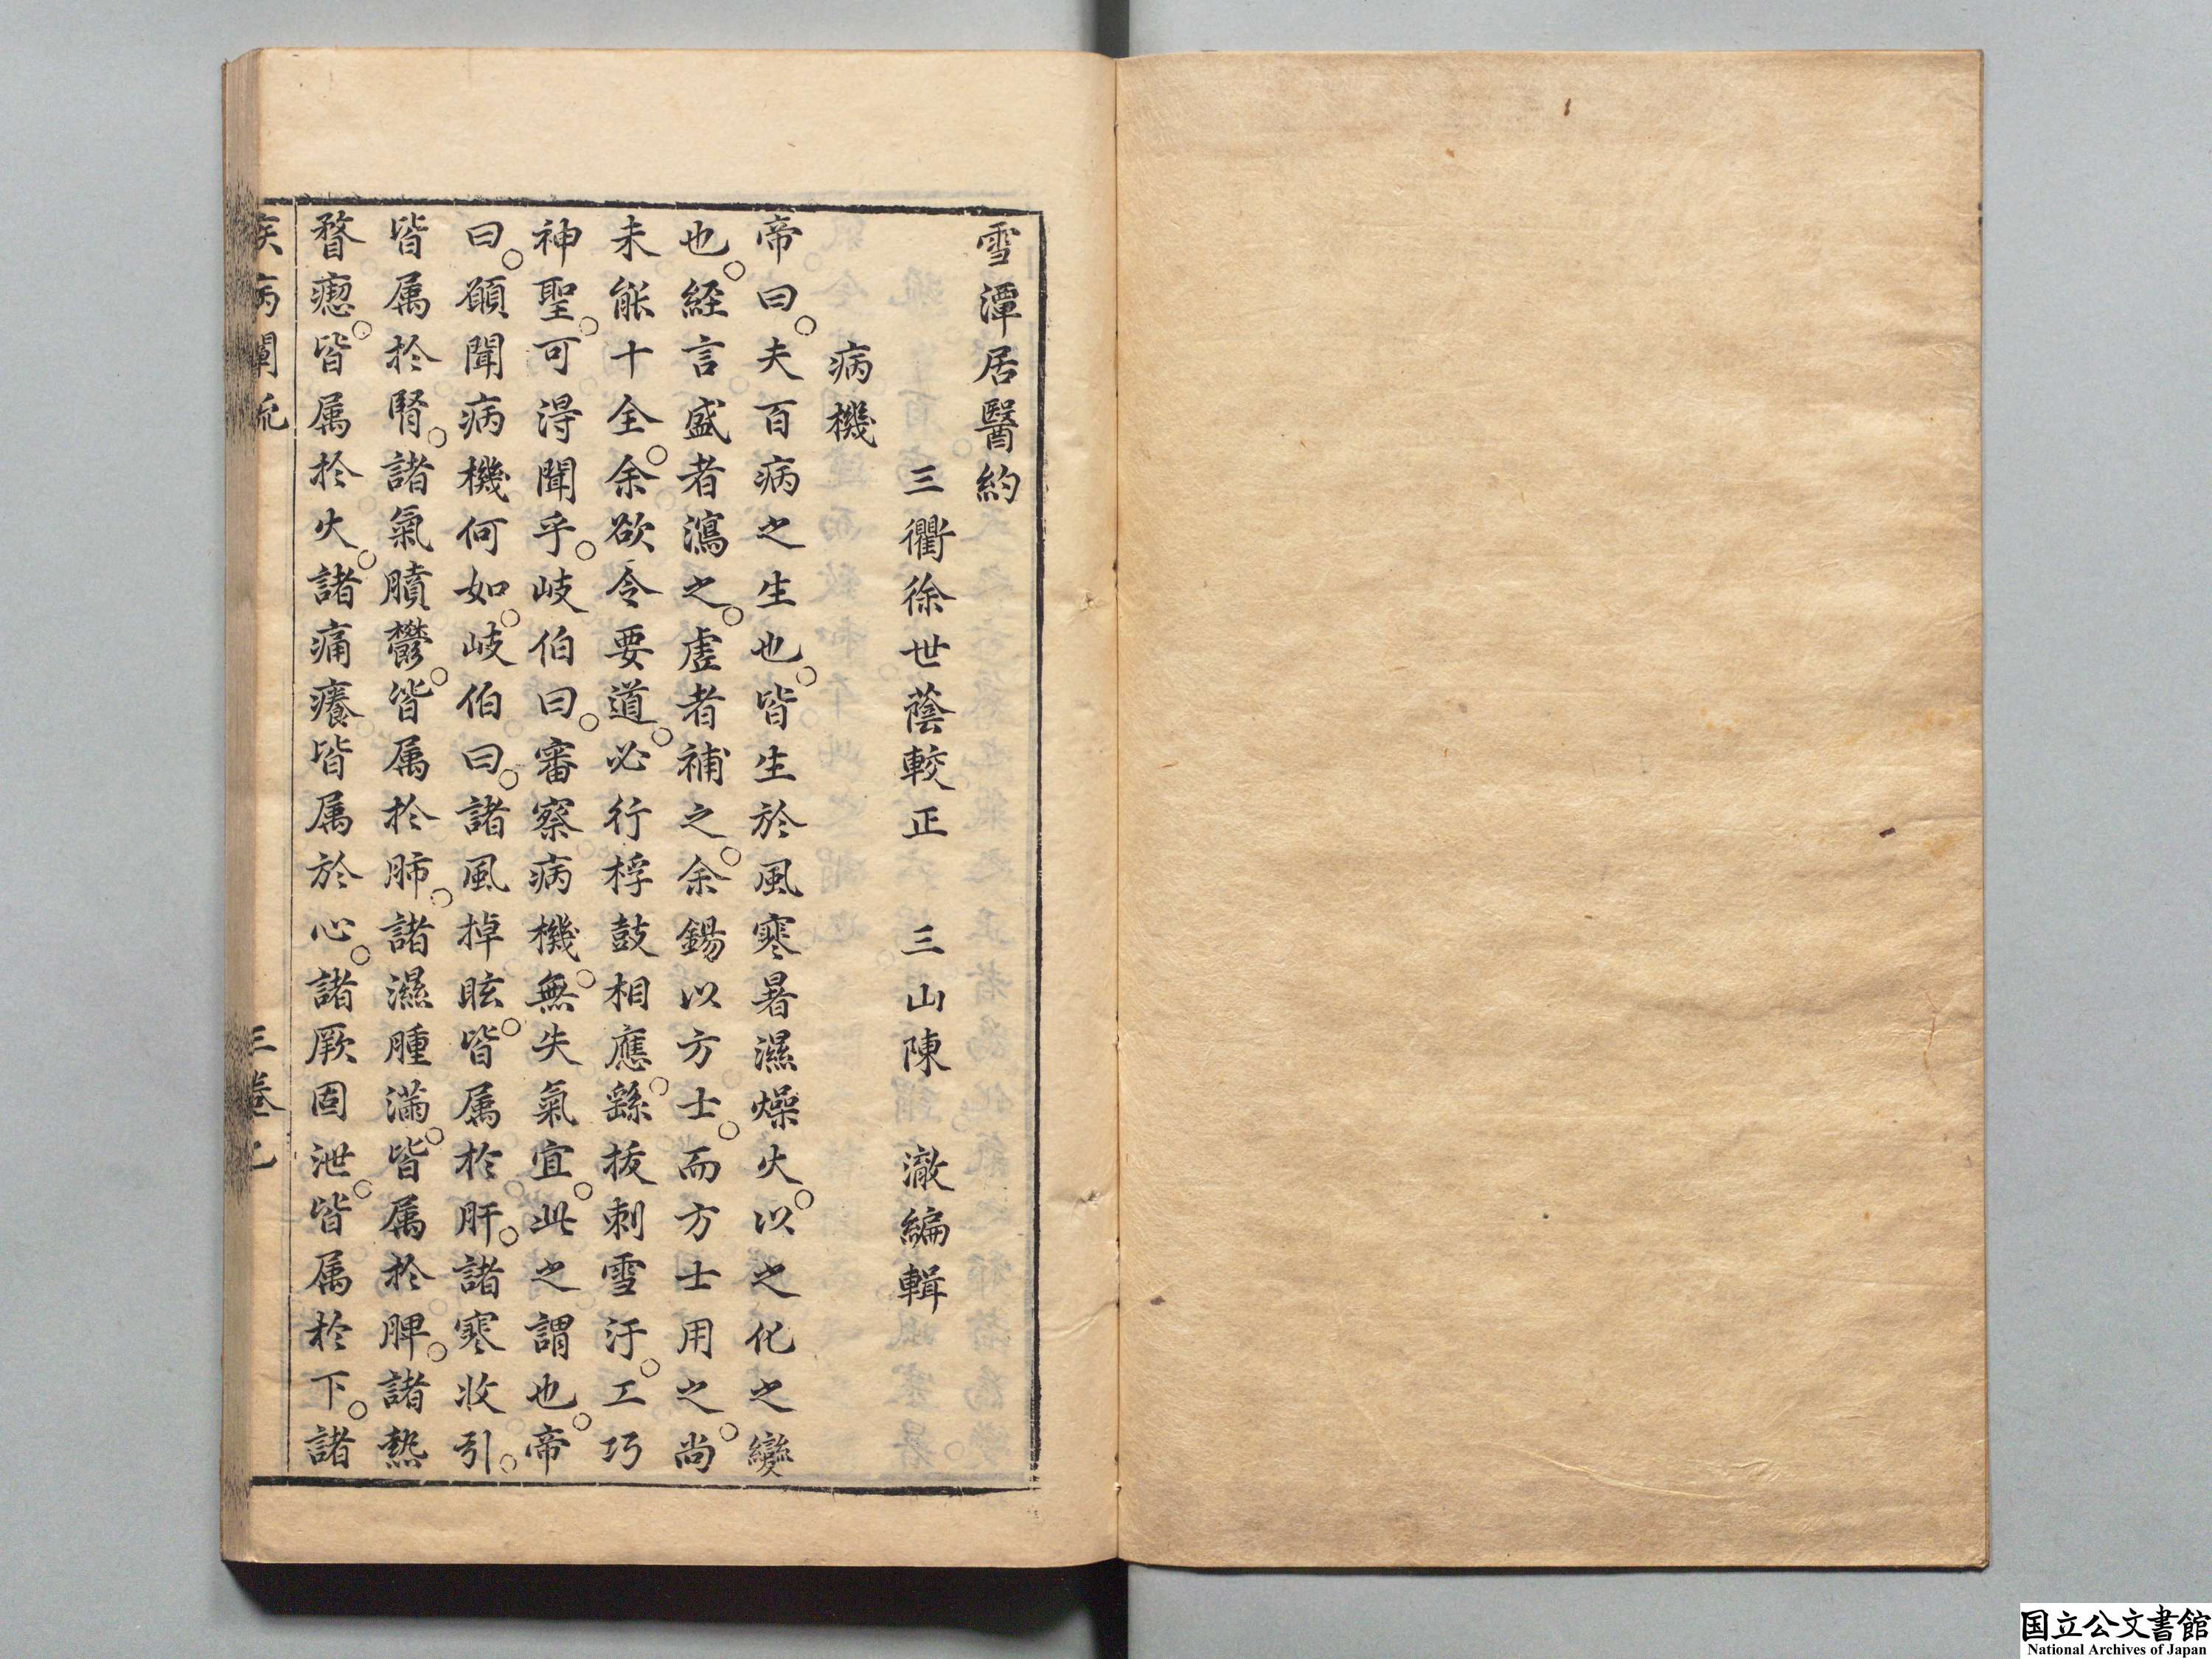 雪潭居醫約
三衢徐世蔭較正　三山陳　澈編輯
病機
帝曰。夫百病之生也。皆生於風寒暑濕燥火。以之化之變
也。經言盛者瀉之。虛者補之。余錫以方士。而方士用之。尚
未能十全。余欲令要道。必行桴鼓相應。繇拔刺雪汙。工巧
神聖。可得聞乎。岐伯曰。審察病機。無失氣宜。此之謂也。帝
曰。願聞病機何如。岐伯曰。諸風掉眩。皆属於肝。諸寒收引。
皆属於腎。諸氣膹鬱。皆属於肺。諸濕腫滿。皆属於脾。諸熱
瞀瘛。皆属於火。諸痛癢皆属於心。諸厥固泄。皆属於下。諸
疾病闡疏　三卷乙
国立公文書館
National Archives of Japan